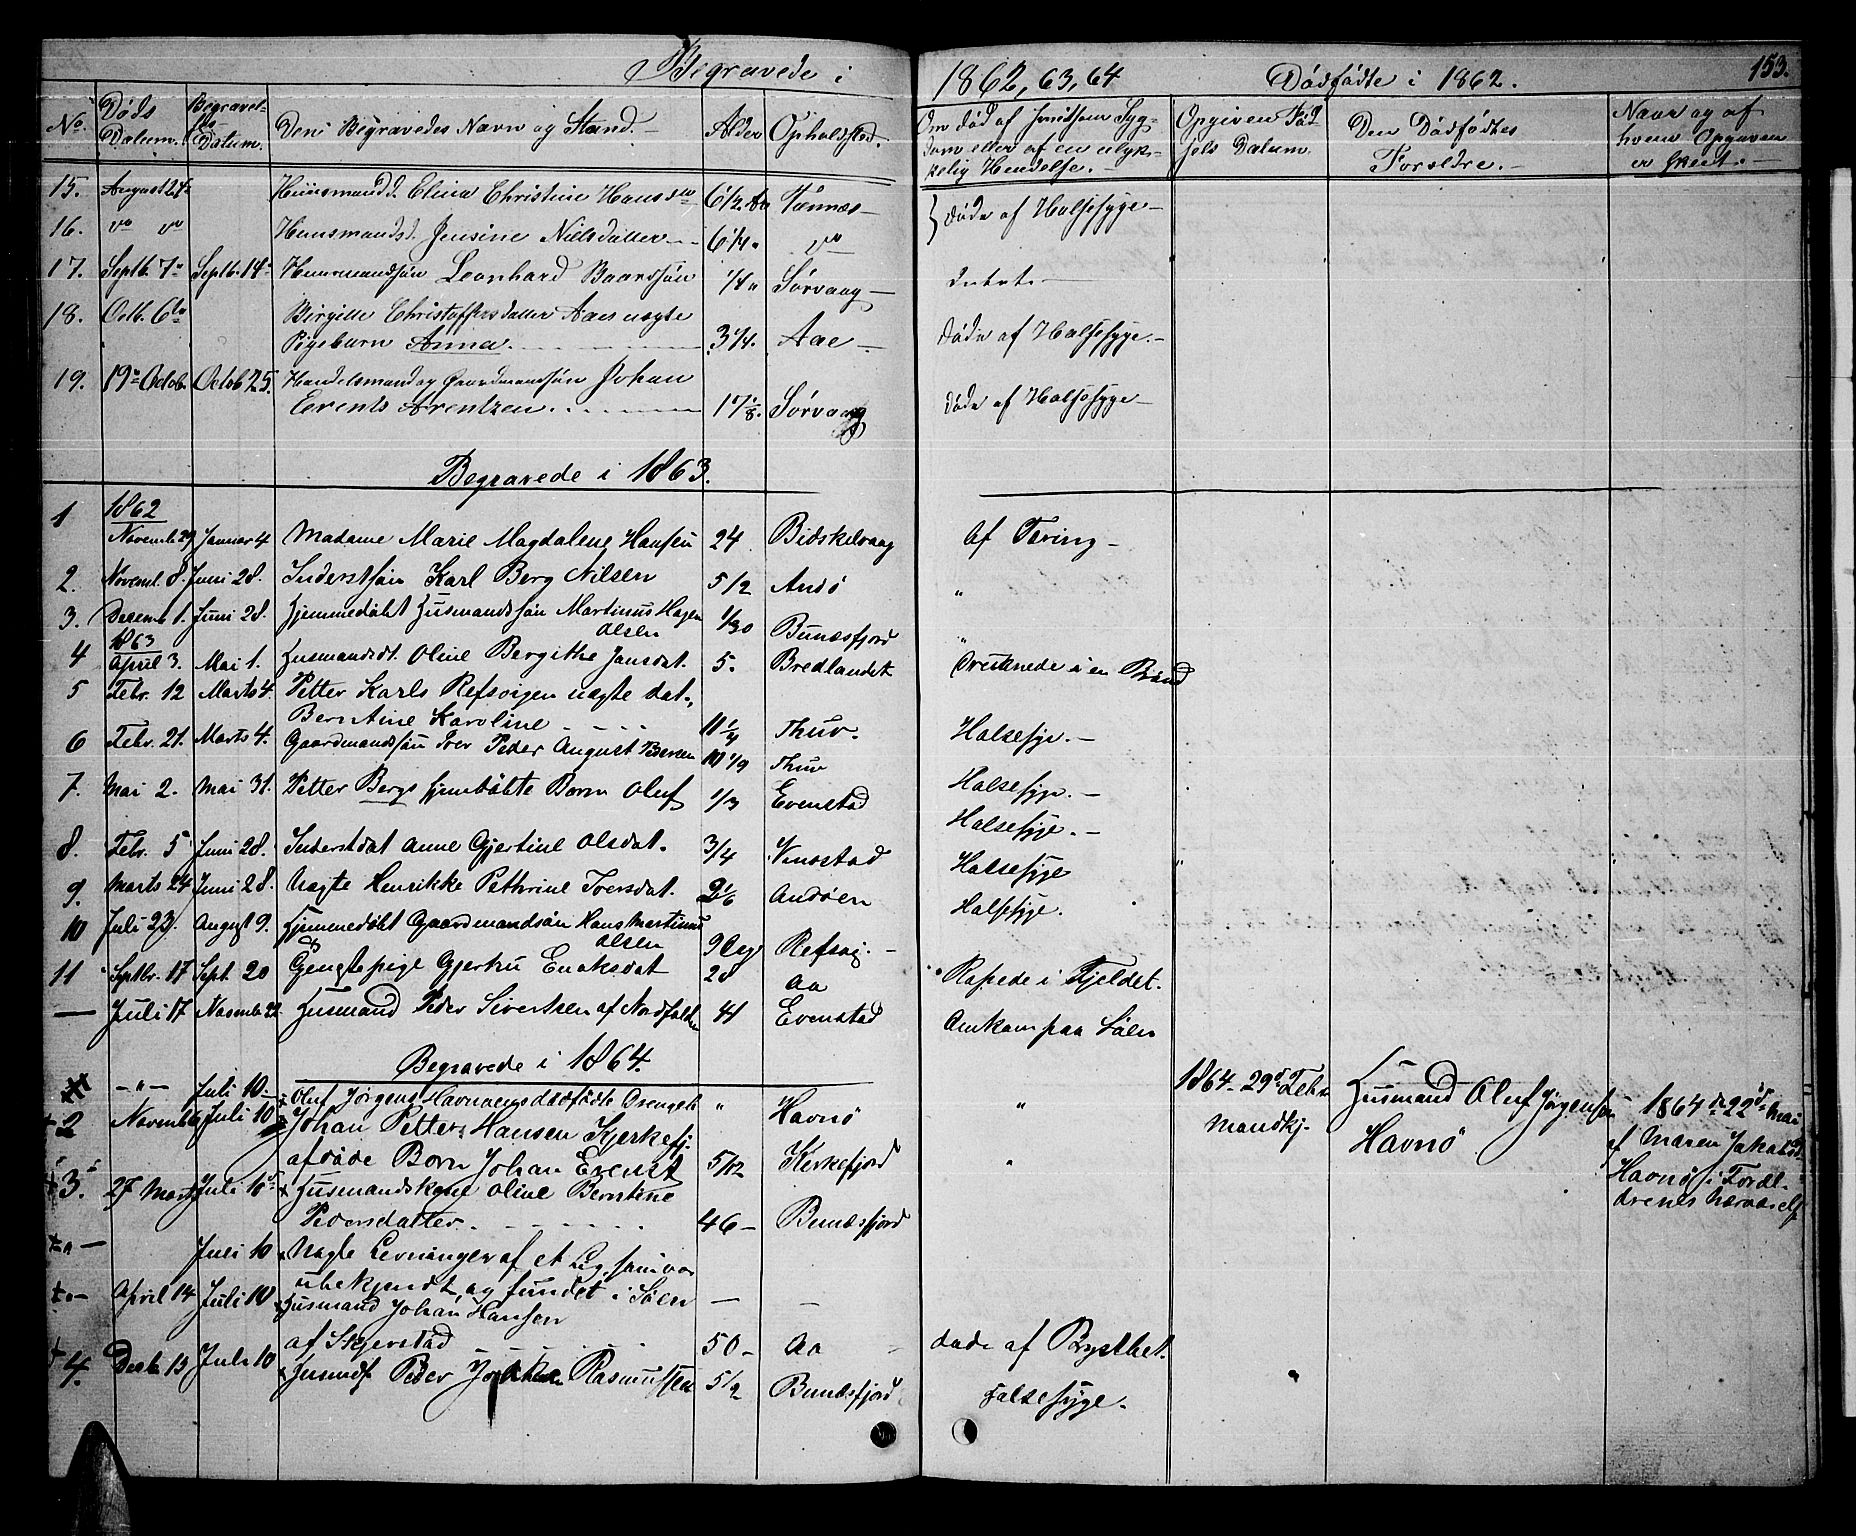 Begravede i 1862, 63, 64 Dödfödte i 1862. 153.
No. Döds Datum. Begravelses Datum. Den Begravedes Navn og Stand. Alder Opholdsted. Om död af hvilken Sygdom eller af en ulykkelig Hendelse. Opgiven Födsels Datum. Den Dödfödtes Forældre. Naar og af hvem Opgaven er skeet.
15. August 27 Huusmandsd. Elina Christine Hansdn 6 1/2 Aar Tennæs döde af Halsesyge
16. do do Huusmandsd. Jensine Nielsdatter 6 1/4 do
17. Septb. 7 Septb. 14 Huusmandssön Leonhard Baardsön 1/4 Sörvaag
18. Octb. 6te Birgitte Christoffersdatter Aaes uægte
Pigebarn Anna. 3 1/4. Aae döde af Halsesyge.
19. 19 Octob. Octob 25. Handelsmand og Gaardmandssön Johan
Events Arentzen. 17 1/8. Sörvaag döde af Halsesyge
Begravede i 1863.
1 1862
Novemb 29 Januar 4 Madame Marie Magdalene Hansen 24 Bidskelvaag Af Tæring
2. Novemb. 8. Juni 28. Inderstsön Karl Berg Nilsen 5 1/2 Andö "
3. Decemb 1. Juni 28. Hjemmedöbt Husmandssön Martinus Hagen
Olsen 1/30 Bunæsfjord "
4 1863
April 3. Mai 1. Husmandsdt. Oline Bergithe Jansdat. 5. Bredlandet Druknede i en Brönd
5 Febr. 12 Marts 4. Petter Karls Refsvigen uægte dat.
Berntine Karoline 11 1/4 Thuv. Halsesyge.
6 Febr. 21. Marts 4. Gaardmandssön Iver Peder August Bernsen 10 1/9 Thuv Halsesyge.
7. Mai 2. Mai 31. Petter Bergs hjemdöbte Barn Oluf 1/3 Evenstad Halsesyge.
8. Febr. 5 Juni 28. Inderstdat Anne Gjertine Olsdat. 3/4 Vinostad Halsesyge
9. Marts 24 Juni 28. Uægte Henrikke Pethrine Iversdat. 2 1/6 Andöen Halsesyge.
10 Juli 23. August 9. Hjemmedöbt Gaardmandssön Hans Martinus
Olsen 9 Dage Refsvig.
11 Septbr. 17 Sept. 20 Tjenstepige Gjertru Enoksdat 28 Aa Rapede i Fjeldet.
— Juli 17 Novemb 22 Husmand Peder Sivertsen af Nordfolden 41 Evenstad Omkom paa Söen
Begravede i 1864.
— " — Juli 10 Oluf Jörgens Havnöens dödfödte Drengeb. " Havnö " 1864 29de Febr Husmand Oluf Jörgensen 1864 d. 22de Mai
mandkj. Havnö af Maren Jakobsd.
2 Novemb 6 Juli 10 Johan Petter Hansen Kjerkefj.
afdöde Barn Johan Ernst 5/12 Kirkefjord " Havnö i Foræl-
drenes nærværelse
3. 27 Marts Juli 10 Husmandskone Oline Berntine
Pedersdatter. 46 Bunæsfjord
Juli 10 Nogle Levninger af et Lig, som var
ubekjendt, og fundet i Söen — —
April 14 Juli 10 Husmand Johan Hansen
af Skjerstad 50 Aa döde af Brysthet.
4. Decb 13 Juli 10 Husmds Peder Rasmussen 5 1/2 Bunæsfjord Halsesyge.